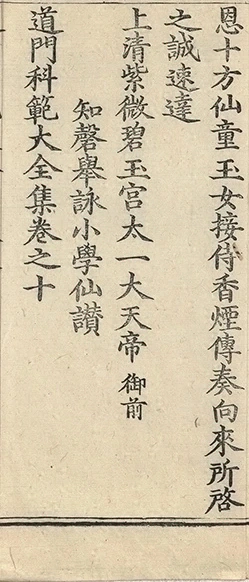 恩十方仙童玉女接侍香煙傳奏向來所啓
之誠速達
上清紫微碧玉宮太一大天帝御前
知磬舉詠小學仙讃
道門科範大全集卷之十